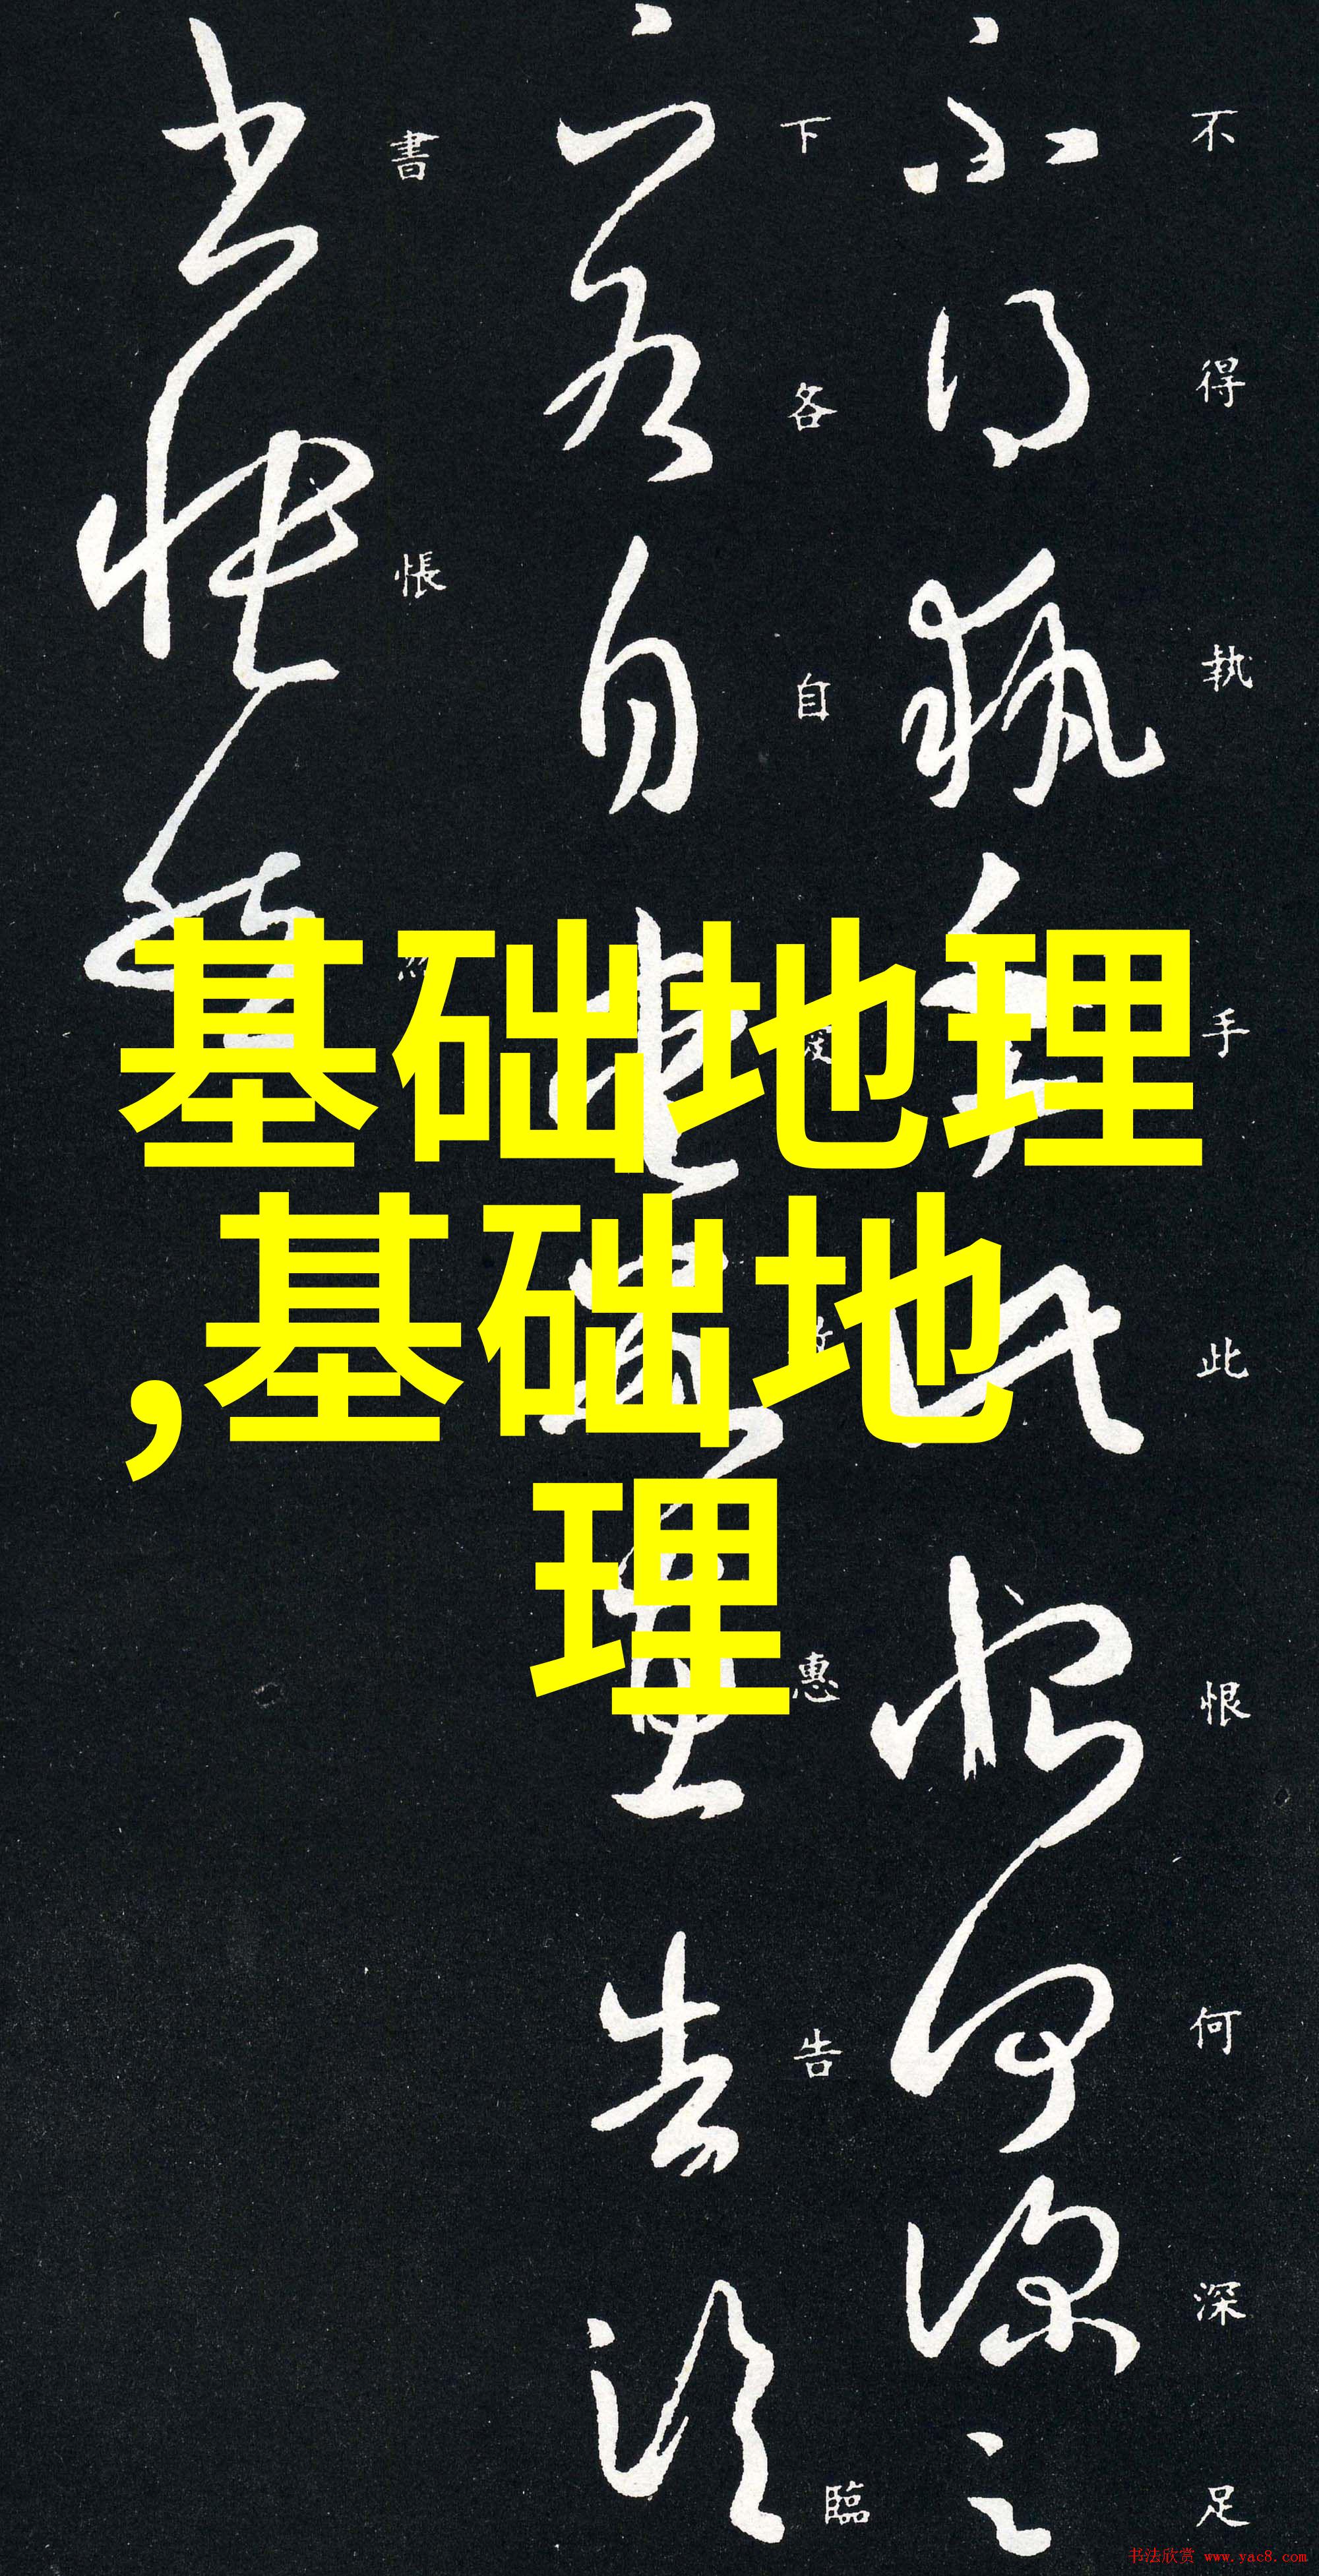 不得執手此恨何深足
下各自愛數惠告臨
書悵然
基础地理
,基础地
理
书法欣赏 www.yac8.com